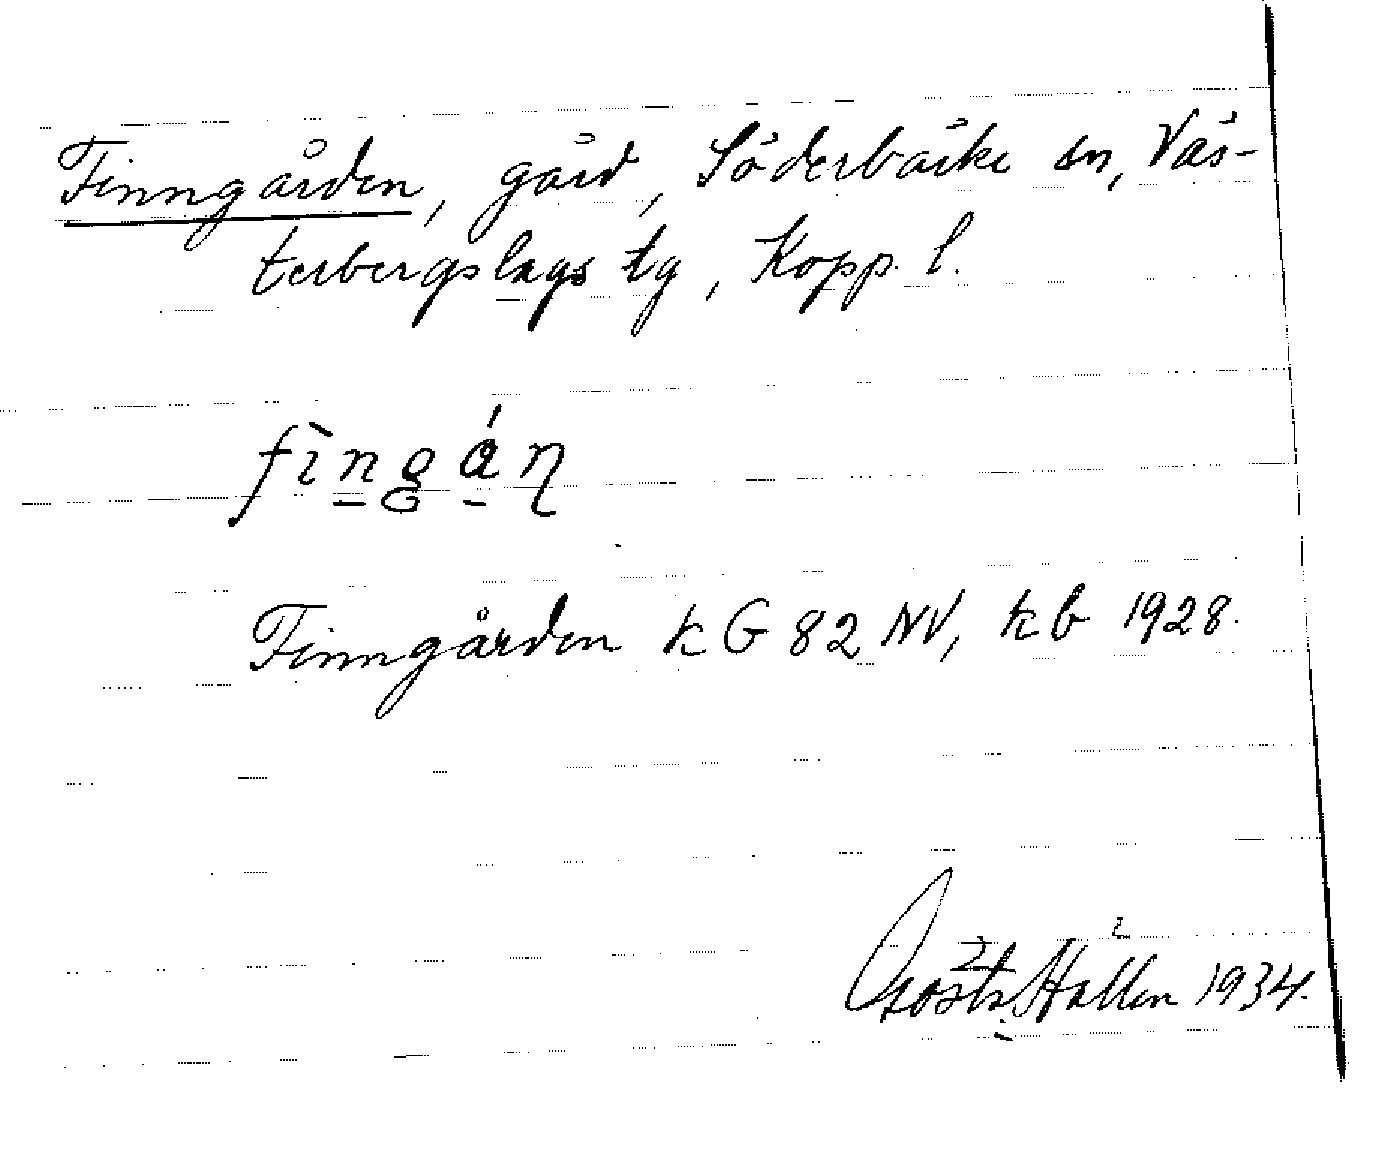 Finngården, gård, Söderbärke sn, Väs-
terbergslags tg, Kopp. l.
fìngán
Finngården kG 82 NV, kb 1928.
Gösta Hallén 1934.